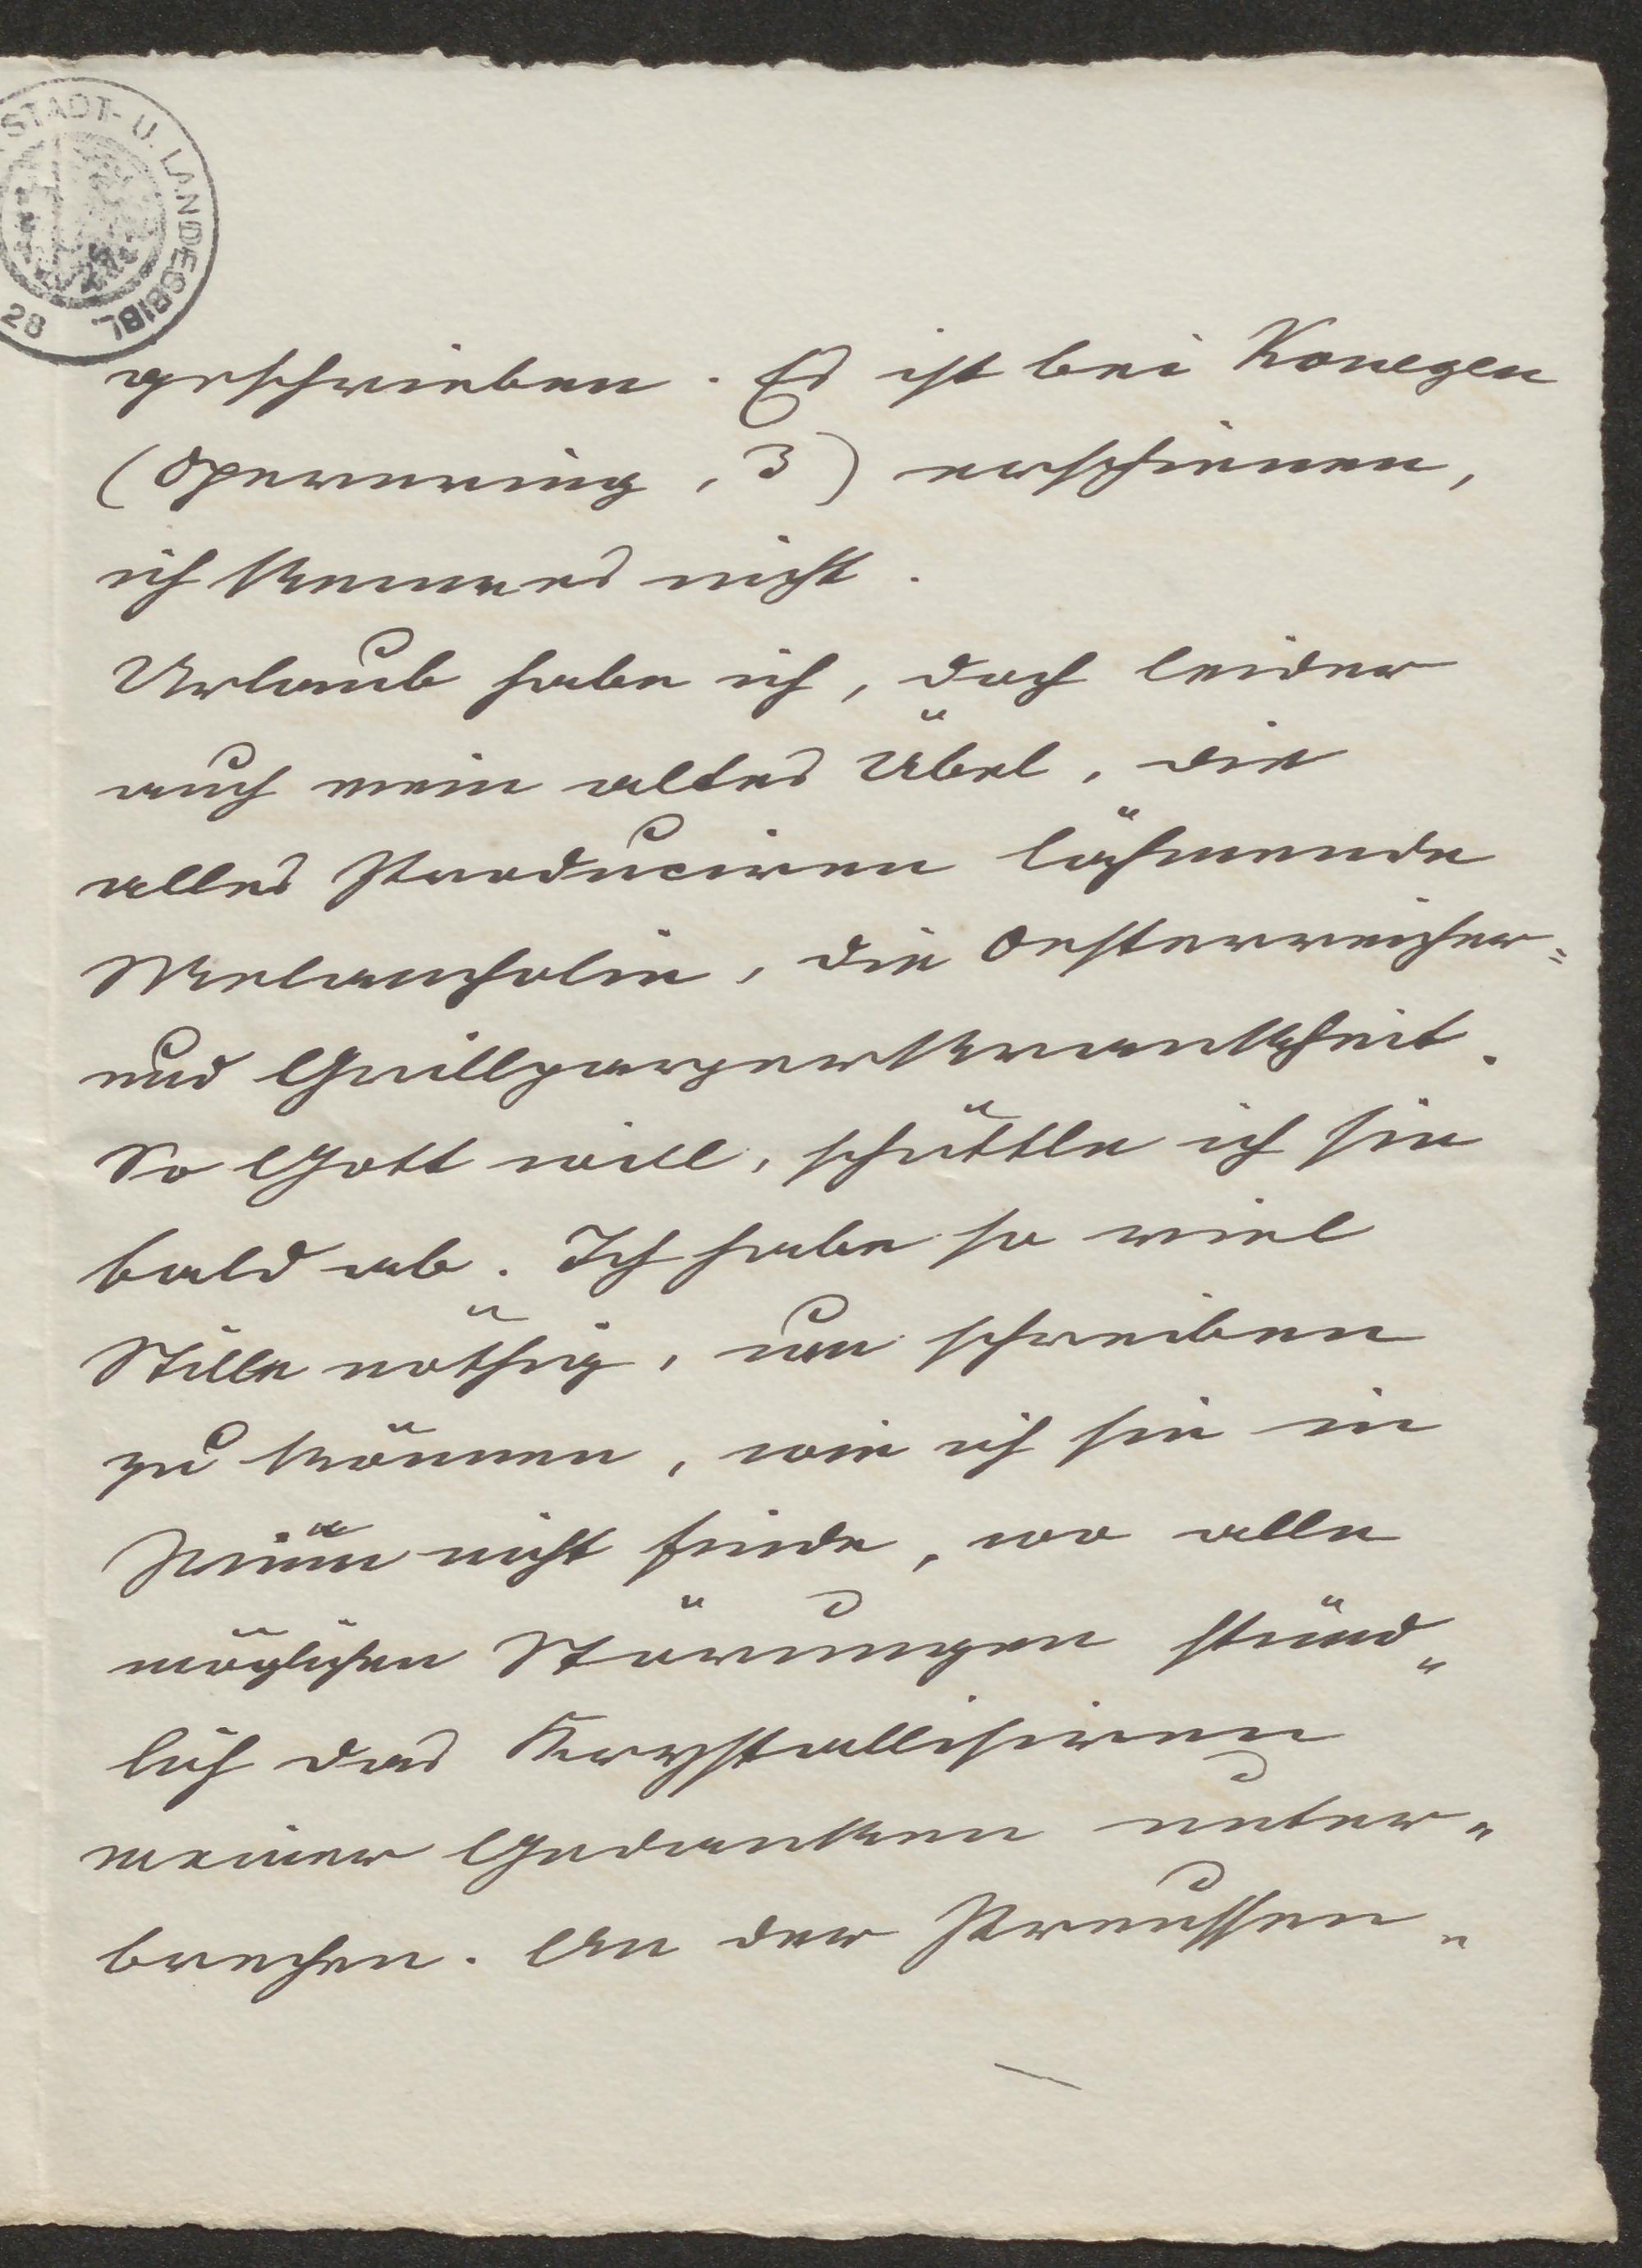 STADT- U. LANDESBIBL.
28
geschrieben. Es ist bei Konegen
(Opernring, 3) erschienen,
ich kenne es nicht.
Urlaub habe ich, doch leider
auch mein altes Übel, die
alles Produciren lähmende
Melancholie, die Oesterreicher=
und Grillparzerkrankheit.
So Gott will, schüttle ich sie
bald ab. Ich habe so viel
Stille nöthig, um schreiben
zu können, wie ich sie in
nicht finde, wo alle
möglichen Störungen stünd„
lich das Krystallisiren
meiner Gedanken unter„
brechen. An der Preussen„